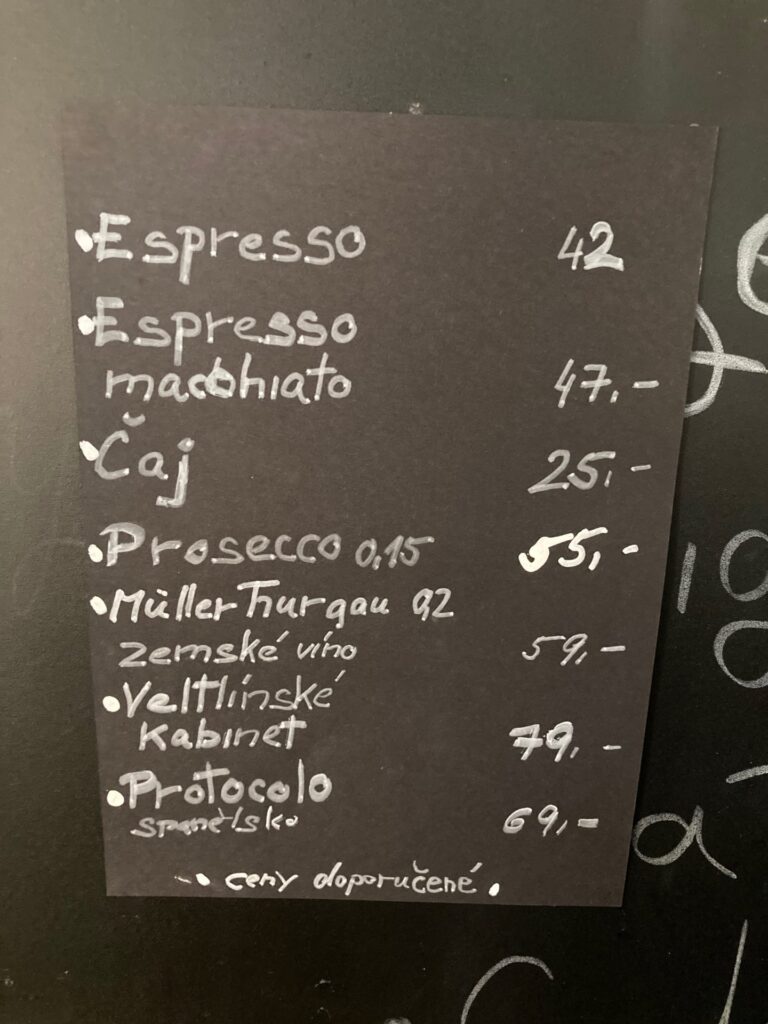 • Espresso 42
• Espresso
macchiato 47,-
• Čaj 25,-
• Prosecco 0,15 55,-
• Müller Thurgau 0,2
zemské víno 59,-
• Veltlínské
Kabinet 79,-
• Protocolo
španělsko 69,-
• ceny doporučené •